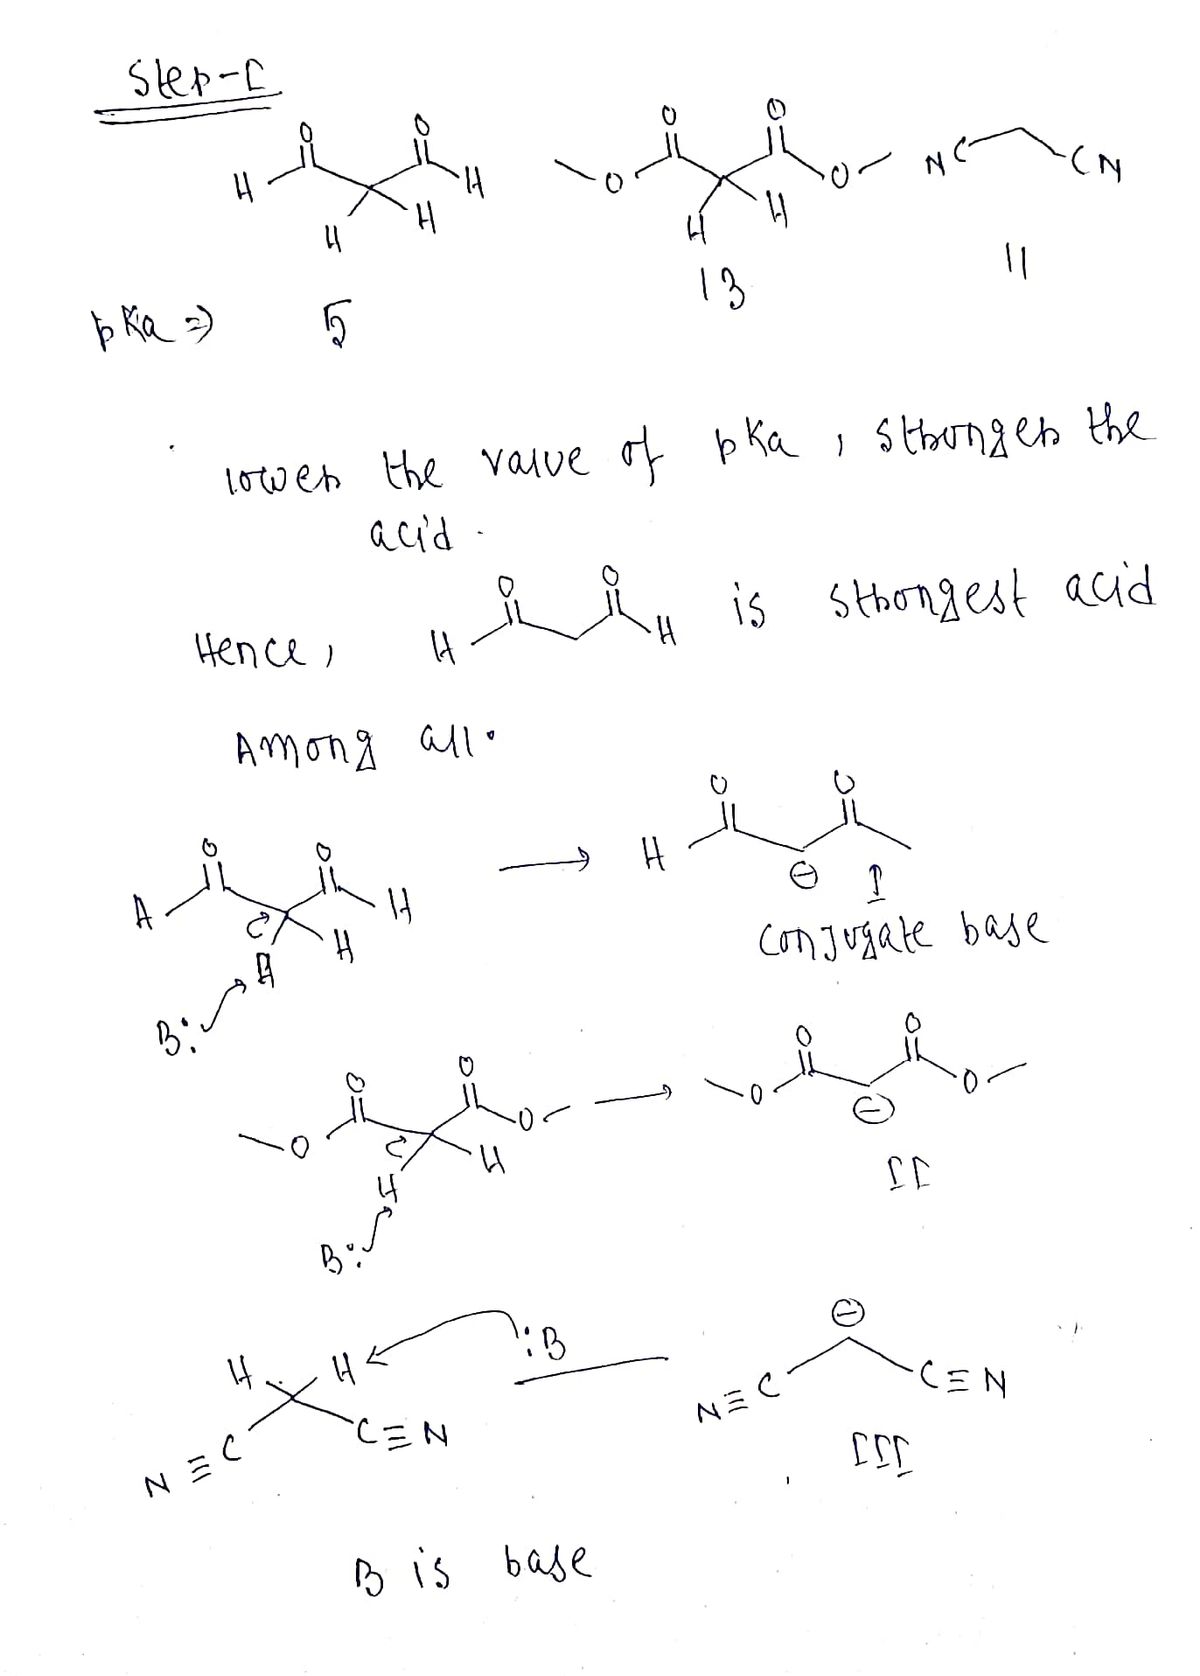 Step-I
O O O O
H H O O NC CN
H H H H
pKa ⇒ 5 13 11
lower the value of pKa, stronger the
acid.
O O
Hence, H H is strongest acid
Among all.
O O → O O
H H H ⊖ I
H H conjugate base
B:
O O → O O
O O O ⊖ O
H H II
B:
H H :B ⊖
N≡C C≡N N≡C C≡N
III
B is base